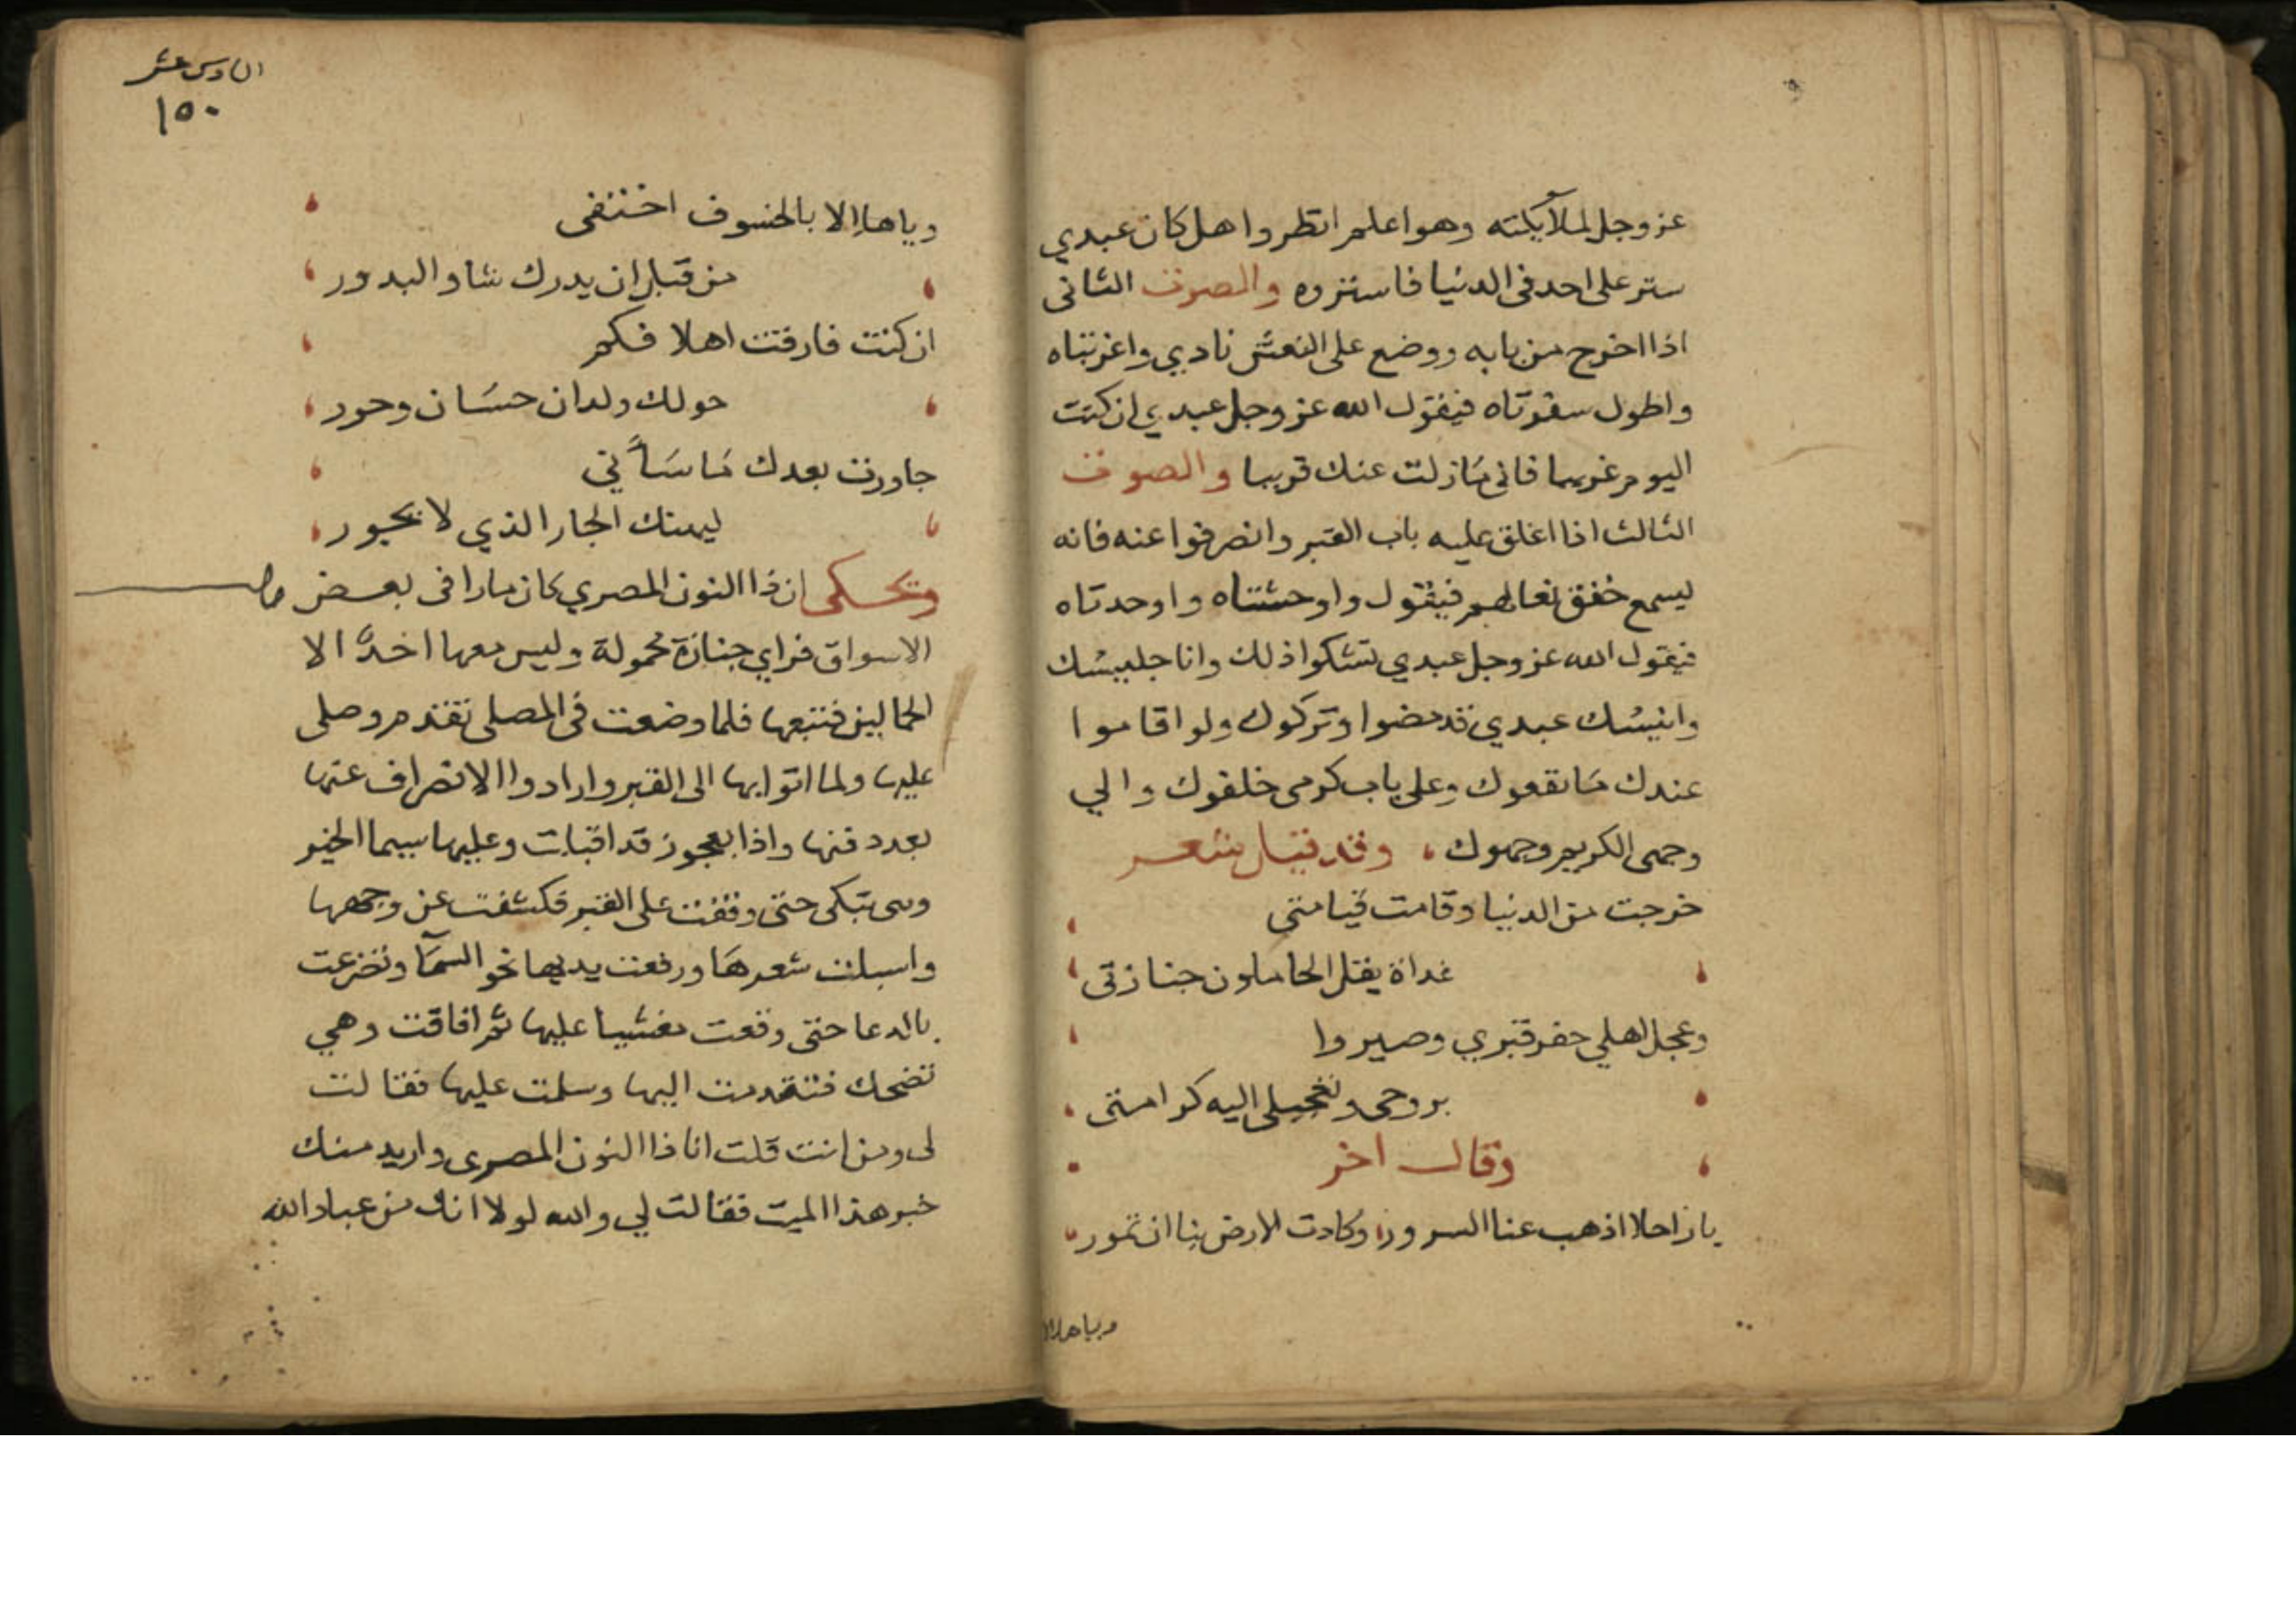 عز وجل لملآيكته وهو اعلم انظروا هل كان عبدي
ستر على احد فى الدنيا فاستزوه والصوت الثانى
اذا اخرج من بابه ووضع على النعش نادي واغربتاه
واطول سفرتاه فيقول الله عز وجل عبدي ان كنت
اليوم غريبا فانى مازلت عنك قريبا والصوت
الثالث اذا اغلق عليه باب القبر وانصرفوا عنه فانه
ليسمع خفق نعالهم فيقول واوحشتاه واوحدتاه
فيقول الله عز وجل عبدي تشكوا ذلك وانا جليسك
وانيسك عبدي قد مضوا وتركوك ولو اقاموا
عندك ما نفعوك وعلى باب كرمى خلفوك والي
وحمى الكريم وجهوك وقد قيل شعر
خرجت من الدنيا وقامت قيامتى
غداة يقل الحاملون جنازتى
وعجل اهلي حفر قبري وصيروا
بروحى وتعجيلى اليه كرامتى
وقال اخر
يا راحلا اذهب عنا السرور وكادت الارض بنا ان تمور
ويا هلالا
السادس عشر
١٥٠
ويا هلالا بالخسوف اختفى
من قبل ان يدرك شاو البدور
ان كنت فارقت اهلا فكم
حولك ولدان حسان وحور
جاورت بعدك ما ساني
ليهنك الجار الذي لا يجور
ويحكى ان ذا النون المصري كان مارا فى بعض
الاسواق فراي جنازة محمولة وليس معها احد الا
الحمالين فتبعها فلما وضعت فى المصلى تقدم وصلى
عليها ولما اتوا بها الى القبر وارادوا الانصراف عنها
بعد دفنها واذا بعجوز قد اقبلت وعليها سيما الخير
وهى تبكى حتى وقفت على القبر فكشفت عن وجهها
واسبلت شعرها ورفعت يديها نحو السمآ وتضرعت
بالدعا حتى وقعت مغشيا عليها ثم افاقت وهي
تضحك فتقدمت اليها وسلمت عليها فقالت
لى ومن انت قلت انا ذا النون المصرى واريد منك
خبر هذا الميت فقالت لي والله لولا انك من عباد الله